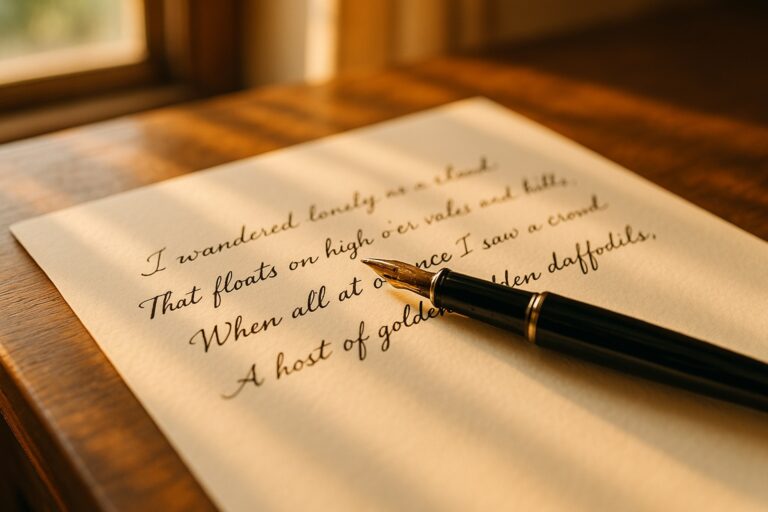 I wandered lonely as a cloud
That floats on high o'er vales and hills,
When all at once I saw a crowd
A host of golden daffodils,